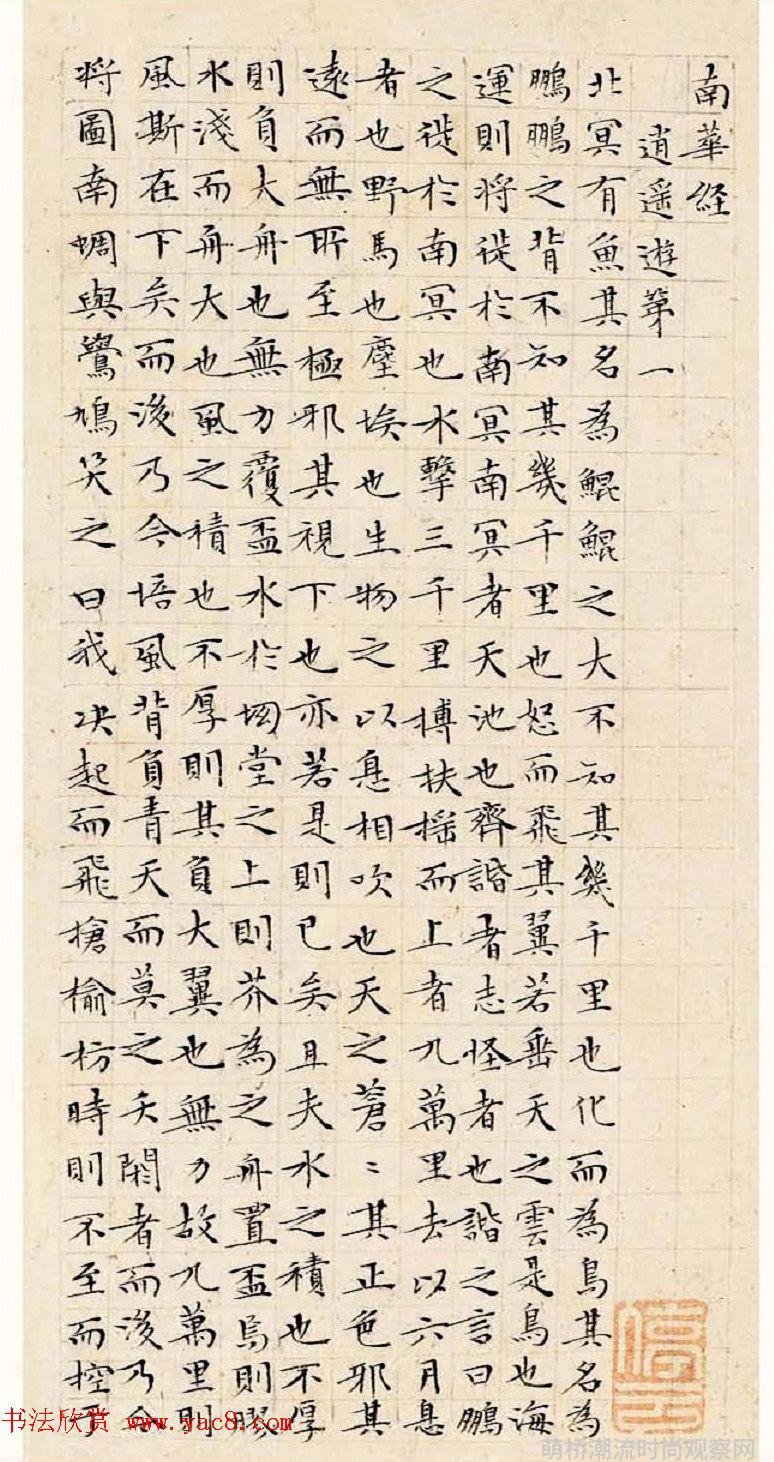 南華経
逍遥遊第一
北冥有魚其名為鯤鯤之大不知其幾千里也化而為鳥其名為
鵬鵬之背不知其幾千里也怒而飛其翼若垂天之雲是鳥也海
運則将徙於南冥南冥者天池也齊諧者志怪者也諧之言曰鵬
之徙於南冥也水擊三千里搏扶摇而上者九萬里去以六月息
者也野馬也塵埃也生物之以息相吹也天之蒼〻其正色邪其
遠而無所至極邪其視下也亦若是則已矣且夫水之積也不厚
則負大舟也無力覆盃水於坳堂之上則芥為之舟置盃焉則膠
水淺而舟大也風之積也不厚則其負大翼也無力故九萬里則
風斯在下矣而後乃今培風背負青天而莫之夭閼者而後乃今
将圖南蜩與鷽鳩笑之曰我决起而飛搶榆枋時則不至而控
书法欣赏 www.yac8.com
萌桥潮流时尚观察网